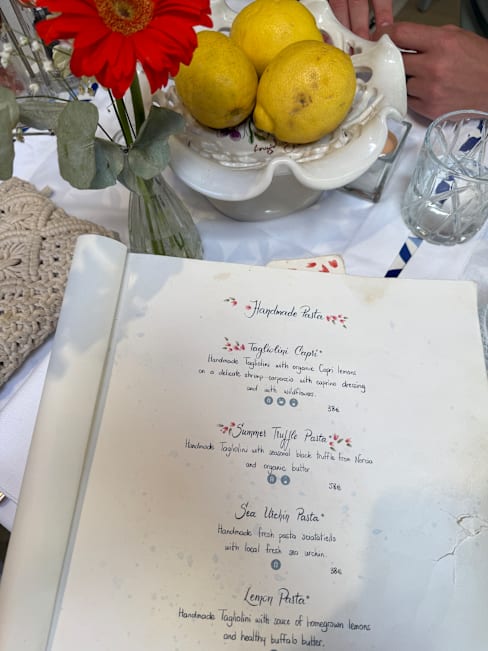 Handmade Pasta
Tagliolini Capri*
Handmade Tagliolini with organic Capri lemons
on a delicate shrimp carpaccio with caprino dressing
and with wildflowers.
38€
Summer Truffle Pasta
Handmade Tagliolini with seasonal black truffle from Norcia
and organic butter.
38€
Sea Urchin Pasta*
Handmade fresh pasta Scialatiello
with local fresh sea urchin.
38€
Lemon Pasta*
Handmade Tagliolini with sauce of homegrown lemons
and healthy buffalo butter.